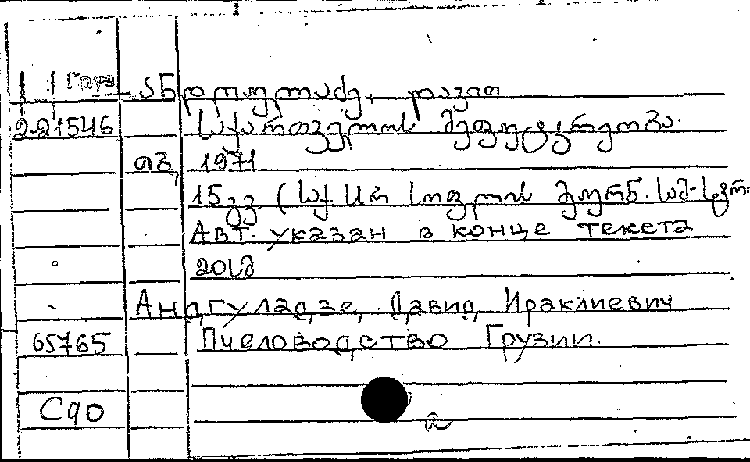 ანდღულაძე, დავით
2-21546 საქართველოს მეფუტკრეობა.
თბ, 1971
15 გვ (საქ სსრ სოფლის მეურნ. სამ-სტრო
Авт. указан в конце текста
20კ
Андгуладзе, Давид Ираклиевич
65765 Пчеловодство Грузии.
С90